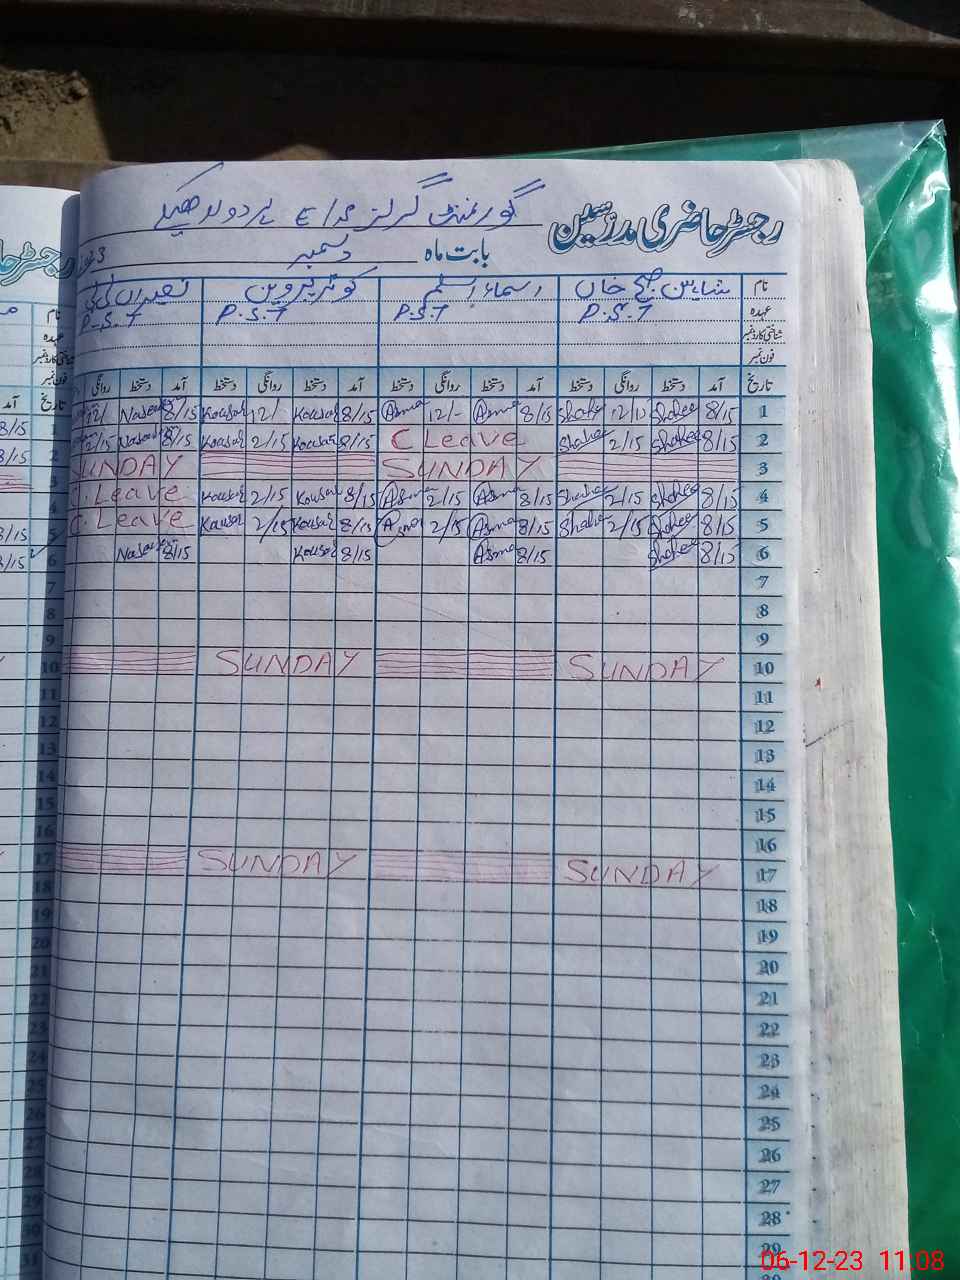 رجسٹر حاضری مدرسین
گورنمنٹ گرلز
بابت ماہ دسمبر 2023
نام شاہین خان اسماء اسلم کوثر پروین نصیراں بی بی
عہدہ P.S.T P.S.T P.S.T P.S.T
شناختی کارڈ نمبر
فون نمبر
تاریخ آمد دستخط روانگی دستخط آمد دستخط روانگی دستخط آمد دستخط روانگی دستخط آمد دستخط روانگی
1 8/15 Shahee 12/10 Shahe 8/15 Asma 12/- Asma 8/15 Kousar 12/- Kousar 8/15 12/-
2 8/15 Shahee 2/15 Shahee C Leave 8/15 Kousar 2/15 Kousar 8/15 2/15
3 SUNDAY SUNDAY
4 8/15 Shahee 2/15 Shahe 8/15 Asma 2/15 Asma 8/15 Kousar 2/15 Kousar C. Leave
5 8/15 Shahee 2/15 Shahe 8/15 Asma 2/15 Asma 8/15 Kousar 2/15 Kousar C. Leave
6 8/15 Shahee 8/15 Asma 8/15 Kousar 8/15
7
8
9
10 SUNDAY SUNDAY
11
12
13
14
15
16
17 SUNDAY SUNDAY
18
19
20
21
22
23
24
25
26
27
28
29
06-12-23 11:08